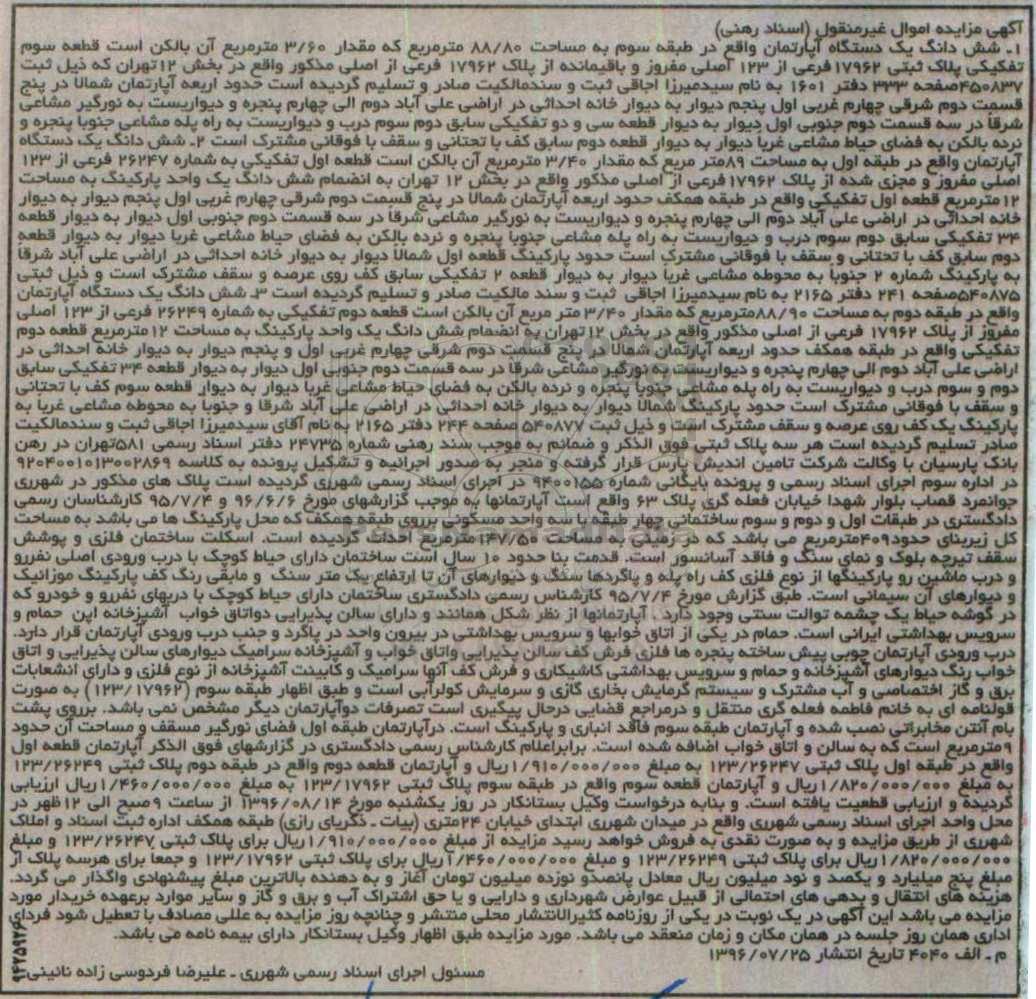 آگهی مزایده اموال غیرمنقول (اسناد رهنی)
۱ـ شش دانگ یک دستگاه آپارتمان واقع در طبقه سوم به مساحت ۸۸/۸۰ مترمربع که مقدار ۳/۶۰ مترمربع آن بالکن است قطعه سوم
تفکیکی پلاک ثبتی ۱۷۹۶۲فرعی از ۱۲۳ اصلی مفروز و باقیمانده از پلاک ۱۷۹۶۲ فرعی از اصلی مذکور واقع در بخش ۱۲تهران که ذیل ثبت
۴۵۰۸۳۷صفحه ۳۳۳ دفتر ۱۶۰۱ به نام سیدمیرزا اجاقی ثبت و سندمالکیت صادر و تسلیم گردیده است حدود اربعه آپارتمان شمالا در پنج
قسمت دوم شرقی چهارم غربی اول پنجم دیوار به دیوار خانه احداثی در اراضی علی آباد دوم الی چهارم پنجره و دیواریست به نورگیر مشاعی
شرقاً در سه قسمت دوم جنوبی اول دیوار به دیوار قطعه سی و دو تفکیکی سابق دوم سوم درب و دیواریست به راه پله مشاعی جنوبا پنجره و
نرده بالکن به فضای حیاط مشاعی غربا دیوار به دیوار قطعه دوم سابق کف با تحتانی و سقف با فوقانی مشترک است ۲ـ شش دانگ یک دستگاه
آپارتمان واقع در طبقه اول به مساحت ۸۹متر مربع که مقدار ۳/۴۰ مترمربع آن بالکن است قطعه اول تفکیکی به شماره ۲۶۲۴۷ فرعی از ۱۲۳
اصلی مفروز و مجزی شده از پلاک ۱۷۹۶۲فرعی از اصلی مذکور واقع در بخش ۱۲ تهران به انضمام شش دانگ یک واحد پارکینگ به مساحت
۱۲مترمربع قطعه اول تفکیکی واقع در طبقه همکف حدود اربعه آپارتمان شمالا در پنج قسمت دوم شرقی چهارم غربی اول پنجم دیوار به دیوار
خانه احداثی در اراضی علی آباد دوم الی چهارم پنجره و دیواریست به نورگیر مشاعی شرقاً در سه قسمت دوم جنوبی اول دیوار به دیوار قطعه
۳۴ تفکیکی سابق دوم سوم درب و دیواریست به راه پله مشاعی جنوبا پنجره و نرده بالکن به فضای حیاط مشاعی غربا دیوار به دیوار قطعه
دوم سابق کف با تحتانی و سقف با فوقانی مشترک است حدود پارکینگ قطعه اول شمالا دیوار به دیوار خانه احداثی در اراضی علی آباد شرقاً
به پارکینگ شماره ۲ جنوبا به محوطه مشاعی غرباً دیوار به دیوار قطعه ۲ تفکیکی سابق کف روی عرصه و سقف مشترک است و ذیل ثبتی
۵۴۰۸۷۵صفحه ۲۴۱ دفتر ۲۱۶۵ به نام سیدمیرزا اجاقی ثبت و سند مالکیت صادر و تسلیم گردیده است ۳ـ شش دانگ یک دستگاه آپارتمان
واقع در طبقه دوم به مساحت ۸۸/۹۰مترمربع که مقدار ۳/۴۰ متر مربع آن بالکن است قطعه دوم تفکیکی به شماره ۲۶۲۴۹ فرعی از ۱۲۳ اصلی
مفروز از پلاک ۱۷۹۶۲ فرعی از اصلی مذکور واقع در بخش ۱۲تهران به انضمام شش دانگ یک واحد پارکینگ به مساحت ۱۲مترمربع قطعه دوم
تفکیکی واقع در طبقه همکف حدود اربعه آپارتمان شمالا در پنج قسمت دوم شرقی چهارم غربی اول و پنجم دیوار به دیوار خانه احداثی در
اراضی علی آباد دوم الی چهارم پنجره و دیواریست به نورگیر مشاعی شرقاً در سه قسمت دوم جنوبی اول دیوار به دیوار قطعه ۳۴ تفکیکی سابق
دوم و سوم درب و دیواریست به راه پله مشاعی جنوباً پنجره و نرده بالکن به فضای حیاط مشاعی غرباً دیوار به دیوار قطعه سوم کف با تحتانی
و سقف با فوقانی مشترک است حدود پارکینگ شمالا دیوار به دیوار خانه احداثی در اراضی علی آباد شرقا و جنوبا به محوطه مشاعی غربا به
پارکینگ یک کف روی عرصه و سقف مشترک است و ذیل ثبت ۵۴۰۸۷۷ صفحه ۲۴۴ دفتر ۲۱۶۵ به نام آقای سیدمیرزا اجاقی ثبت و سندمالکیت
صادر تسلیم گردیده است هر سه پلاک ثبتی فوق الذکر و ضمائم به موجب سند رهنی شماره ۲۴۷۳۵ دفتر اسناد رسمی ۵۸۱تهران در رهن
بانک پارسیان با وکالت شرکت تامین اندیش پارس قرار گرفته و منجر به صدور اجرائیه و تشکیل پرونده به کلاسه ۹۲۰۴۰۰۱۰۱۳۰۰۲۸۶۹
در اداره سوم اجرای اسناد رسمی و پرونده بایگانی شماره ۹۴۰۰۱۵۵ در اجرای اسناد رسمی شهرری گردیده است پلاک های مذکور در شهرری
جوانمرد قصاب بلوار شهدا خیابان فعله گری پلاک ۶۳ واقع است آپارتمانها به موجب گزارشهای مورخ ۹۶/۶/۶ و ۹۵/۷/۴ کارشناسان رسمی
دادگستری در طبقات اول و دوم و سوم ساختمانی چهار طبقه با سه واحد مسکونی برروی طبقه همکف که محل پارکینگ ها می باشد به مساحت
کل زیربنای حدود۴۰۹مترمربع می باشد که در زمینی به مساحت ۱۴۷/۵۰مترمربع احداث گردیده است. اسکلت ساختمان فلزی و پوشش
سقف تیرچه بلوک و نمای سنگ و فاقد آسانسور است. قدمت بنا حدود ۱۰ سال است ساختمان دارای حیاط کوچک با درب ورودی اصلی نفررو
و درب ماشین رو پارکینگها از نوع فلزی کف راه پله و پاگردها سنگ و دیوارهای آن تا ارتفاع یک متر سنگ و مابقی رنگ کف پارکینگ موزائیک
و دیوارهای آن سیمانی است. طبق گزارش مورخ ۹۵/۷/۴ کارشناس رسمی دادگستری ساختمان دارای حیاط کوچک با دربهای نفررو و خودرو که
در گوشه حیاط یک چشمه توالت سنتی وجود دارد. آپارتمانها از نظر شکل همانند و دارای سالن پذیرایی دواتاق خواب آشپزخانه اپن حمام و
سرویس بهداشتی ایرانی است. حمام در یکی از اتاق خوابها و سرویس بهداشتی در بیرون واحد در پاگرد و جنب درب ورودی آپارتمان قرار دارد.
درب ورودی آپارتمان چوبی پیش ساخته پنجره ها فلزی فرش کف سالن پذیرایی واتاق خواب و آشپزخانه سرامیک دیوارهای سالن پذیرایی و اتاق
خواب رنگ دیوارهای آشپزخانه و حمام و سرویس بهداشتی کاشیکاری و فرش کف آنها سرامیک و کابینت آشپزخانه از نوع فلزی و دارای انشعابات
برق و گاز اختصاصی و آب مشترک و سیستم گرمایش بخاری گازی و سرمایش کولرآبی است و طبق اظهار طبقه سوم (۱۲۳/۱۷۹۶۲) به صورت
قولنامه ای به خانم فاطمه فعله گری منتقل و درمراجع قضایی درحال پیگیری است تصرفات دوآپارتمان دیگر مشخص نمی باشد. برروی پشت
بام آنتن مخابراتی نصب شده و آپارتمان طبقه سوم فاقد انباری و پارکینگ است. درآپارتمان طبقه اول فضای نورگیر مسقف و مساحت آن حدود
۹مترمربع است که به سالن و اتاق خواب اضافه شده است. برابراعلام کارشناس رسمی دادگستری در گزارشهای فوق الذکر آپارتمان قطعه اول
واقع در طبقه اول پلاک ثبتی ۱۲۳/۲۶۲۴۷ به مبلغ ۱/۹۱۰/۰۰۰/۰۰۰ریال و آپارتمان قطعه دوم واقع در طبقه دوم پلاک ثبتی ۱۲۳/۲۶۲۴۹
به مبلغ ۱/۸۲۰/۰۰۰/۰۰۰ریال و آپارتمان قطعه سوم واقع در طبقه سوم پلاک ثبتی ۱۲۳/۱۷۹۶۲ به مبلغ ۱/۴۶۰/۰۰۰/۰۰۰ریال ارزیابی
گردیدهٔ و ارزیابی قطعیت یافته است. و بنابه درخواست وکیل بستانکار در روز یکشنبه مورخ ۱۳۹۶/۰۸/۱۴ از ساعت ۹صبح الی ۱۲ظهر در
محل واحد اجرای اسناد رسمی شهرری واقع در میدان شهرری ابتدای خیابان ۲۴متری (بیات ـ ذکریای رازی) طبقه همکف اداره ثبت اسناد و املاک
شهرری از طریق مزایده و به صورت نقدی به فروش خواهد رسید مزایده از مبلغ ۱/۹۱۰/۰۰۰/۰۰۰ریال برای پلاک ثبتی ۱۲۳/۲۶۲۴۷ و مبلغ
۱/۸۲۰/۰۰۰/۰۰۰ریال برای پلاک ثبتی ۱۲۳/۲۶۲۴۹ و مبلغ ۱/۴۶۰/۰۰۰/۰۰۰ریال برای پلاک ثبتی ۱۲۳/۱۷۹۶۲ و جمعا برای هرسه پلاک از
مبلغ پنج میلیارد و یکصد و نود میلیون ریال معادل پانصدو نوزده میلیون تومان آغاز و به دهنده بالاترین مبلغ پیشنهادی واگذار می گردد.
هزینه های انتقال و بدهی های احتمالی از قبیل عوارض شهرداری و دارایی و یا حق اشتراک آب و برق و گاز و سایر موارد برعهده خریدار مورد
مزایده می باشد این آگهی در یک نوبت در یکی از روزنامه کثیرالانتشار محلی منتشر و چنانچه روز مزایده به عللی مصادف با تعطیل شود فردای
اداری همان روز جلسه در همان مکان و زمان منعقد می باشد. مورد مزایده طبق اظهار وکیل بستانکار دارای بیمه نامه می باشد.
م ـ الف ۴۰۴۰ تاریخ انتشار ۱۳۹۶/۰۷/۲۵
مسئول اجرای اسناد رسمی شهرری ـ علیرضا فردوسی زاده نائینی
۹۴۲۵۹۲۶